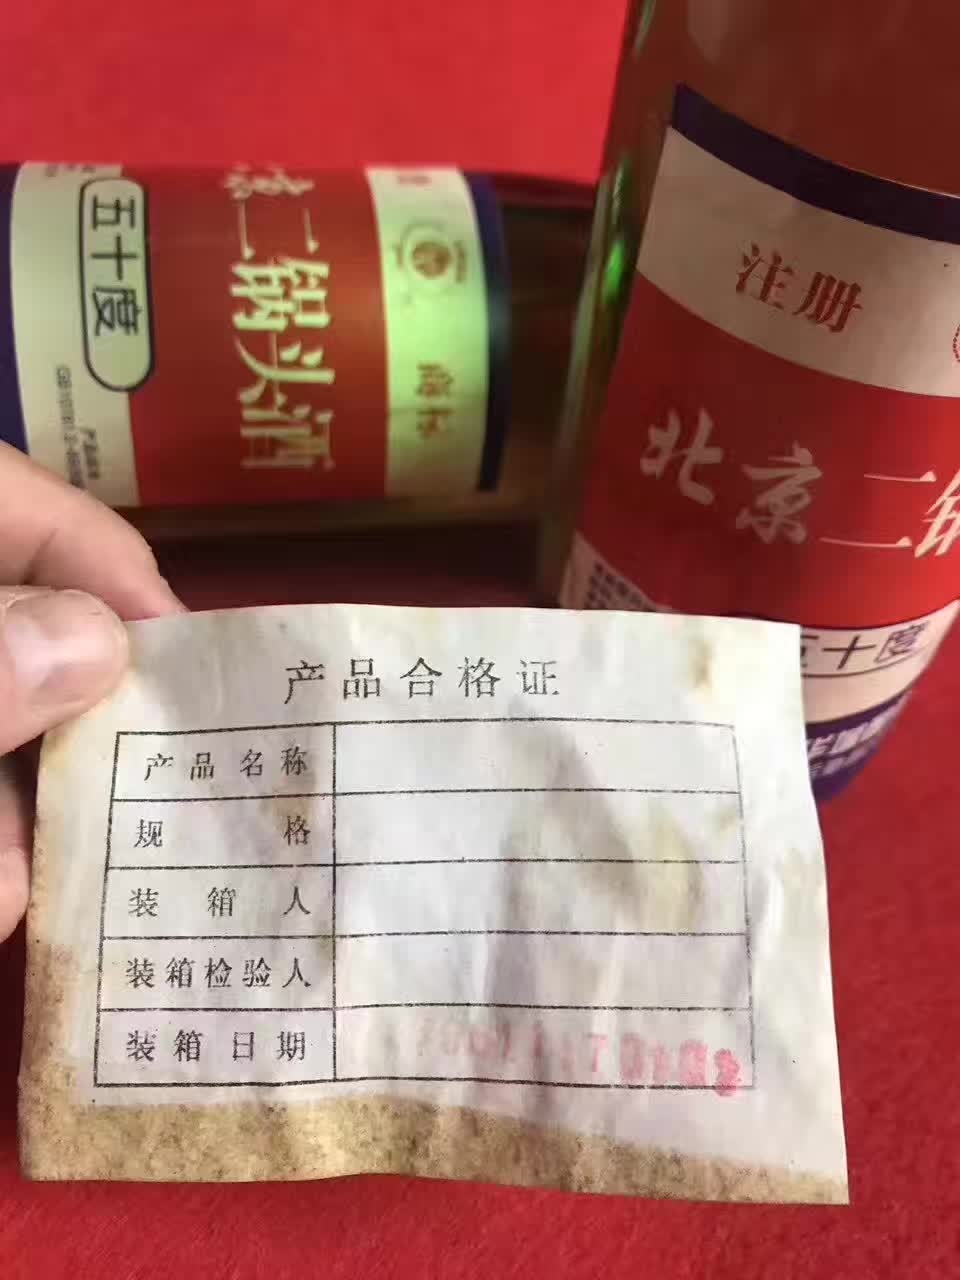 五十度
京二锅头酒
商标
注册
北京二锅
五十度
产品合格证
产品名称
规格
装箱人
装箱检验人
装箱日期